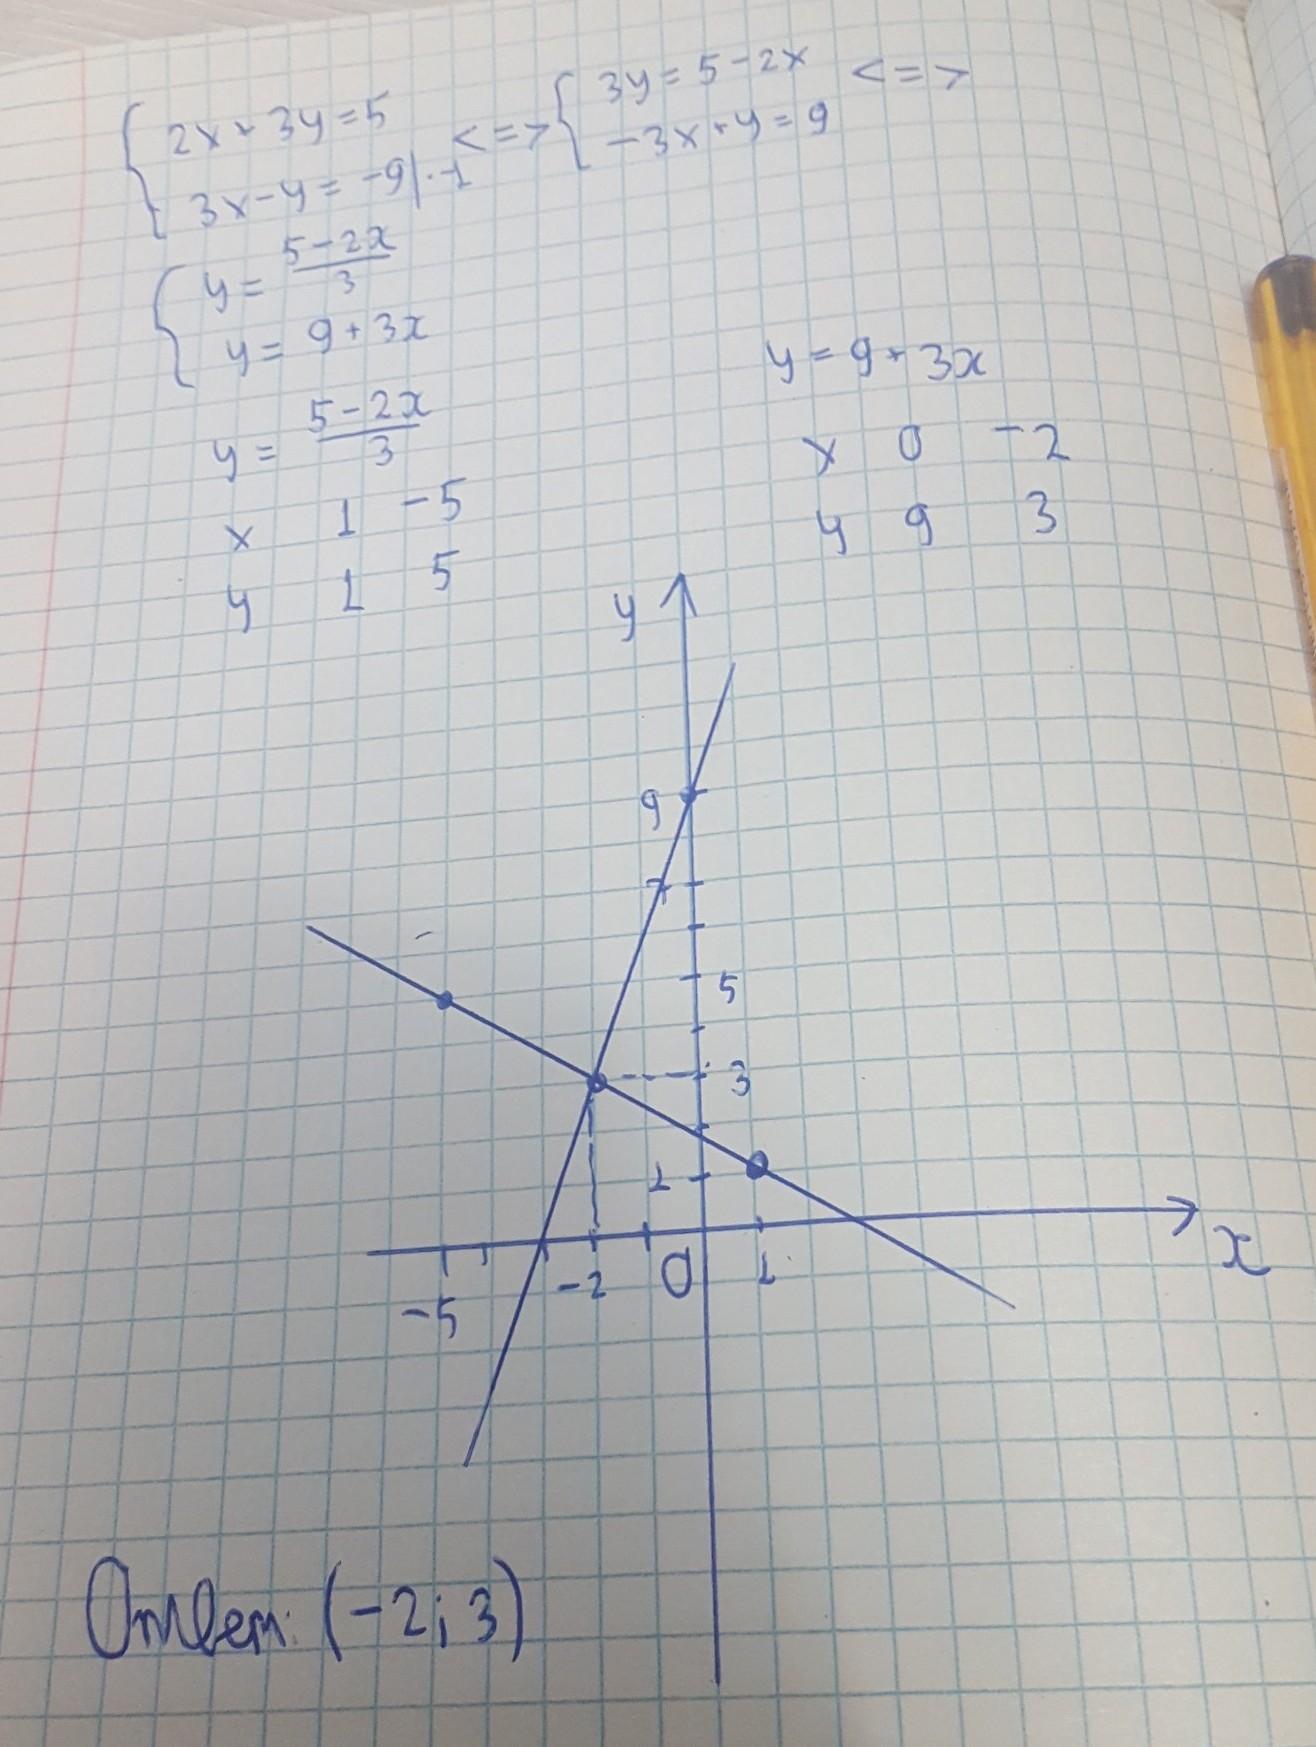 { 2x + 3y = 5 <=> { 3y = 5 - 2x <=>
3x - y = -9 | · -1    -3x + y = 9
{ y = (5 - 2x)/3
y = 9 + 3x
y = (5 - 2x)/3
x 1 -5
y 1 5
y = 9 + 3x
x 0 -2
y 9 3
y
9
7
5
3
1
-5 -2 0 1 x
Ответ: (-2; 3)